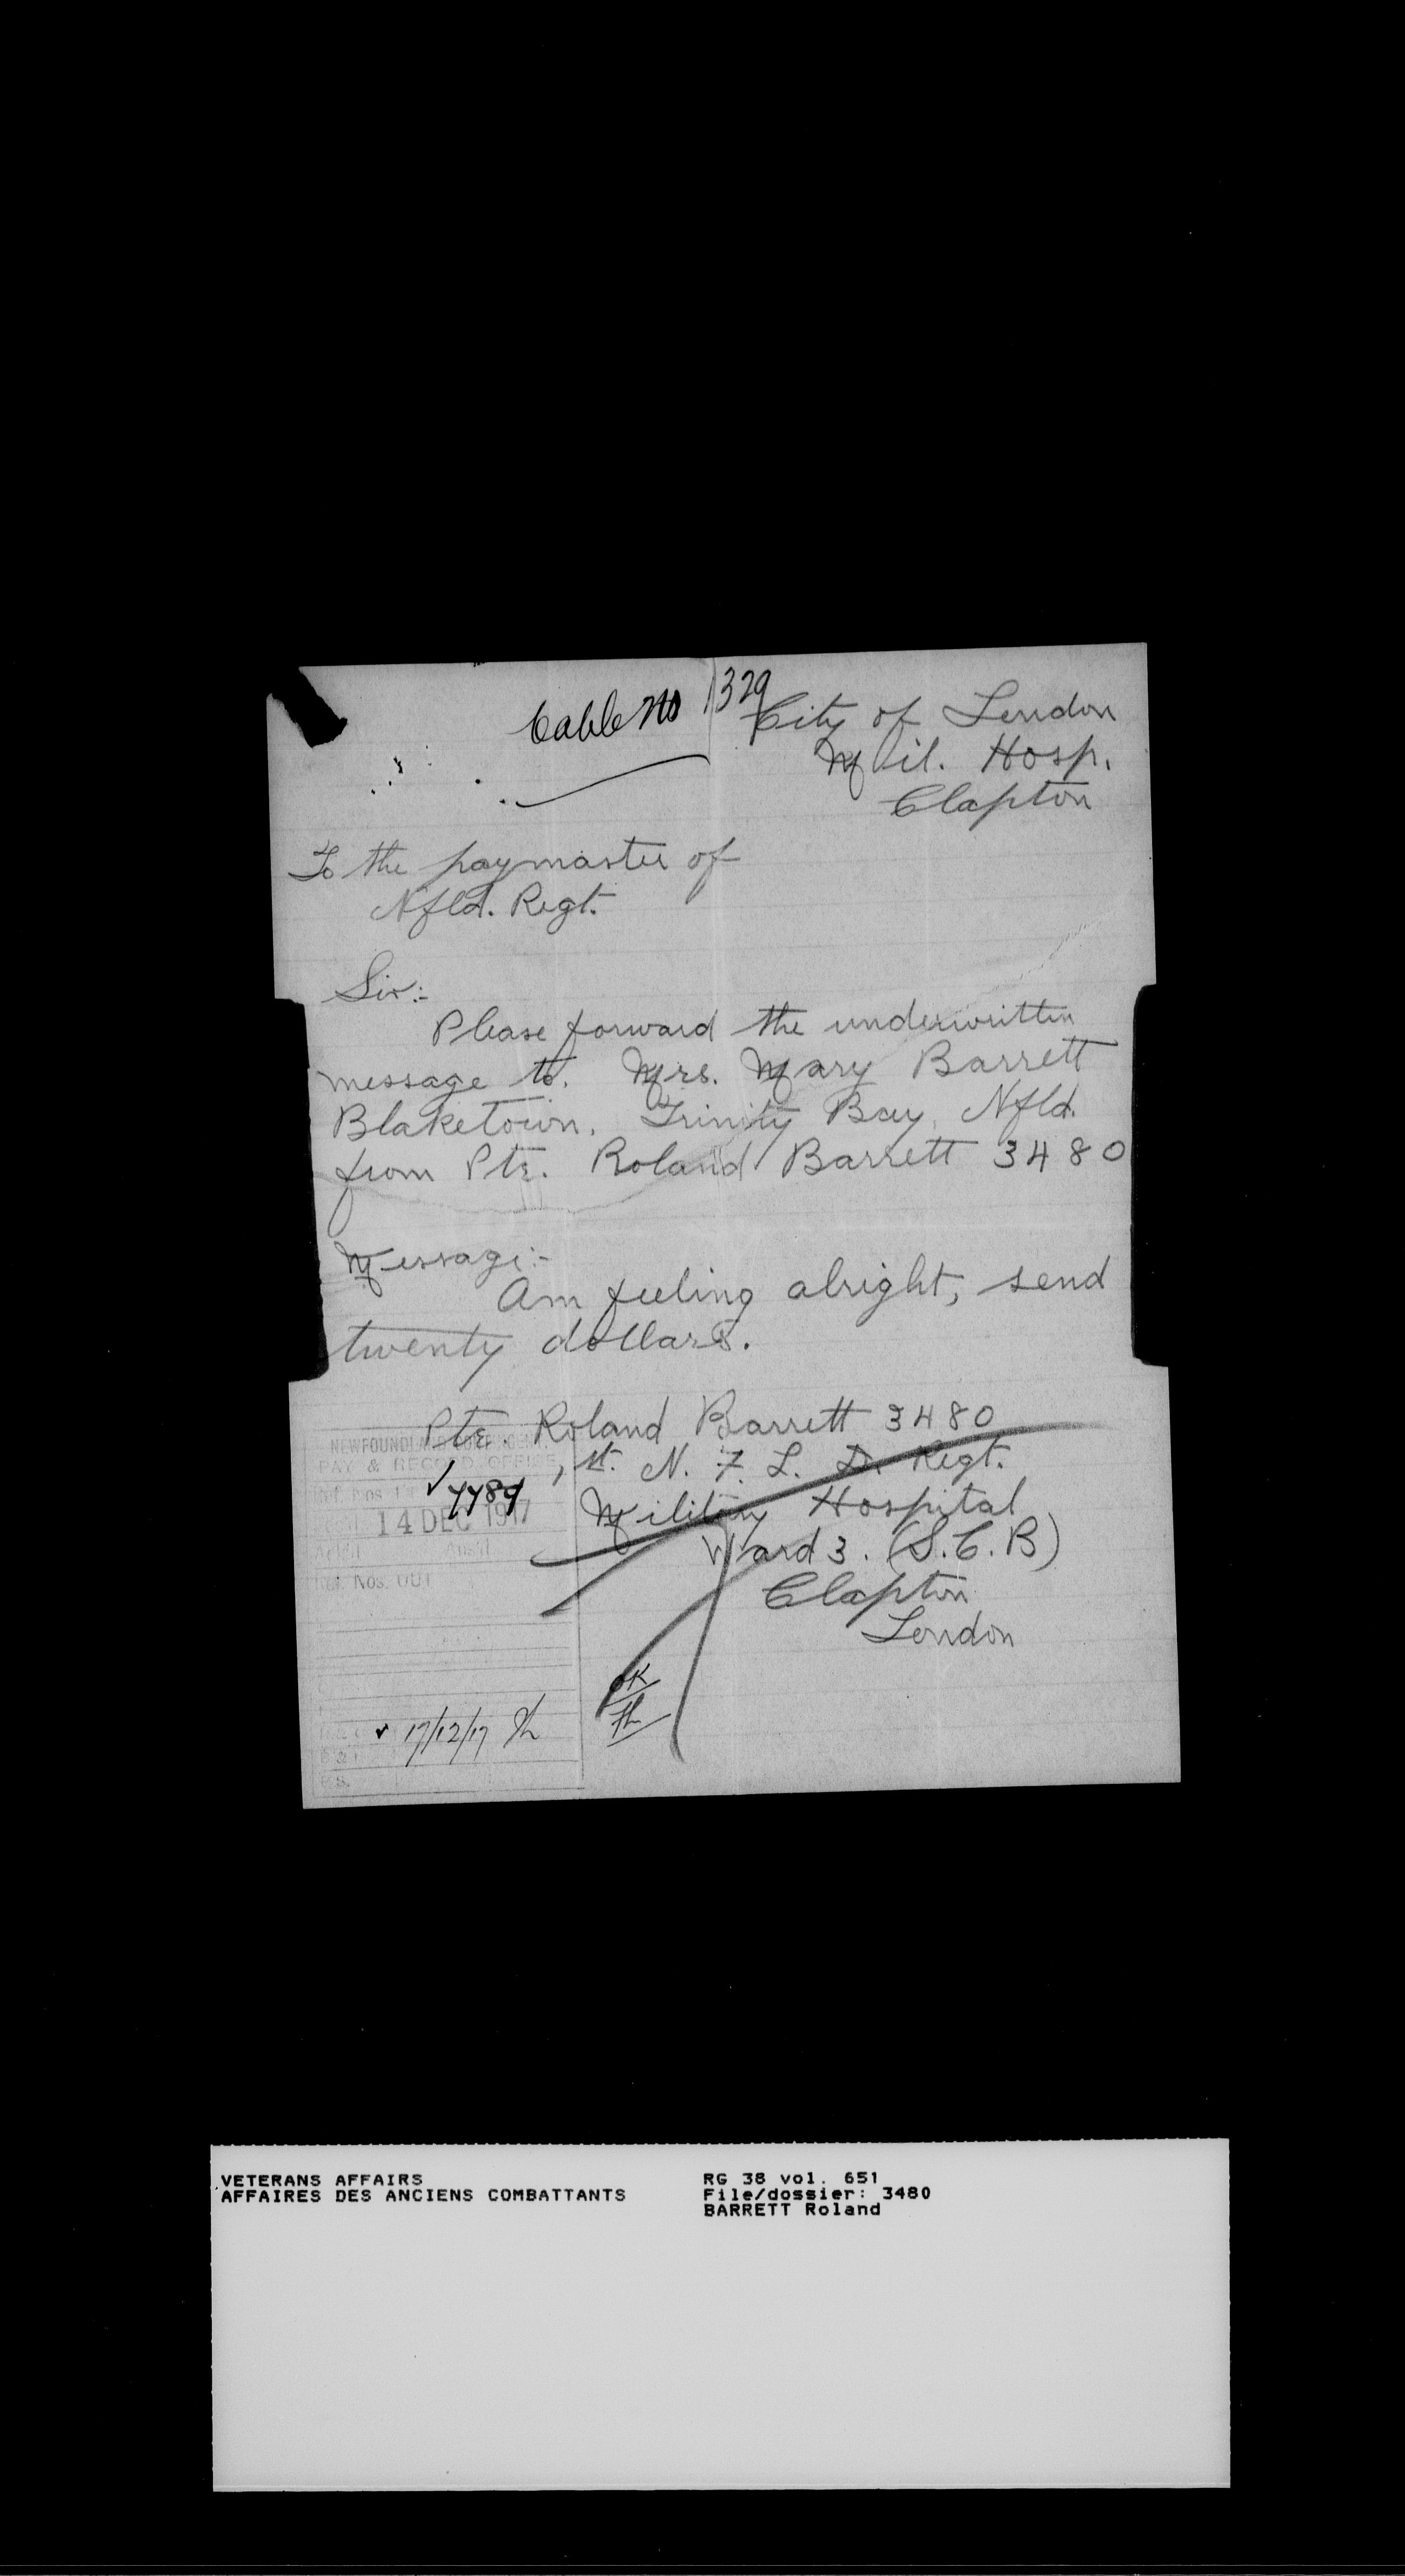 Cable No 1329
City of London
Mil. Hosp.
Clapton
To the paymaster of
Nfld. Regt.
Sir:-
Please forward the underwritten
message to. Mrs. Mary Barrett
Blaketown. Trinity Bay, Nfld.
from Pte. Roland Barrett 3480
Message:-
Am feeling alright, send
twenty dollars.
Pte. Roland Barrett 3480
1st. N. F. L. D. Regt.
Military Hospital
Ward 3. (S.C.B)
Clapton
London
NEWFOUNDLAND
PAY & RECORD OFFICE
7789
14 DEC 1917
Nos. OUT
OK
17/12/17
VETERANS AFFAIRS
AFFAIRES DES ANCIENS COMBATTANTS
RG 38 vol. 651
File/dossier: 3480
BARRETT Roland